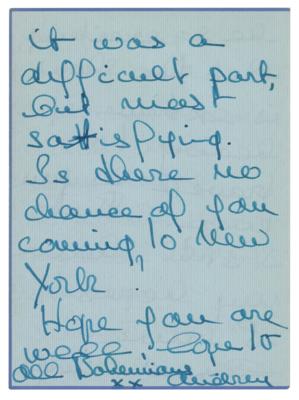 it was a
difficult part,
but most
sattisfying.
Is there no
chance of you
coming to New
York?
Hope you are
well love to
all Bohemians
xx Audrey